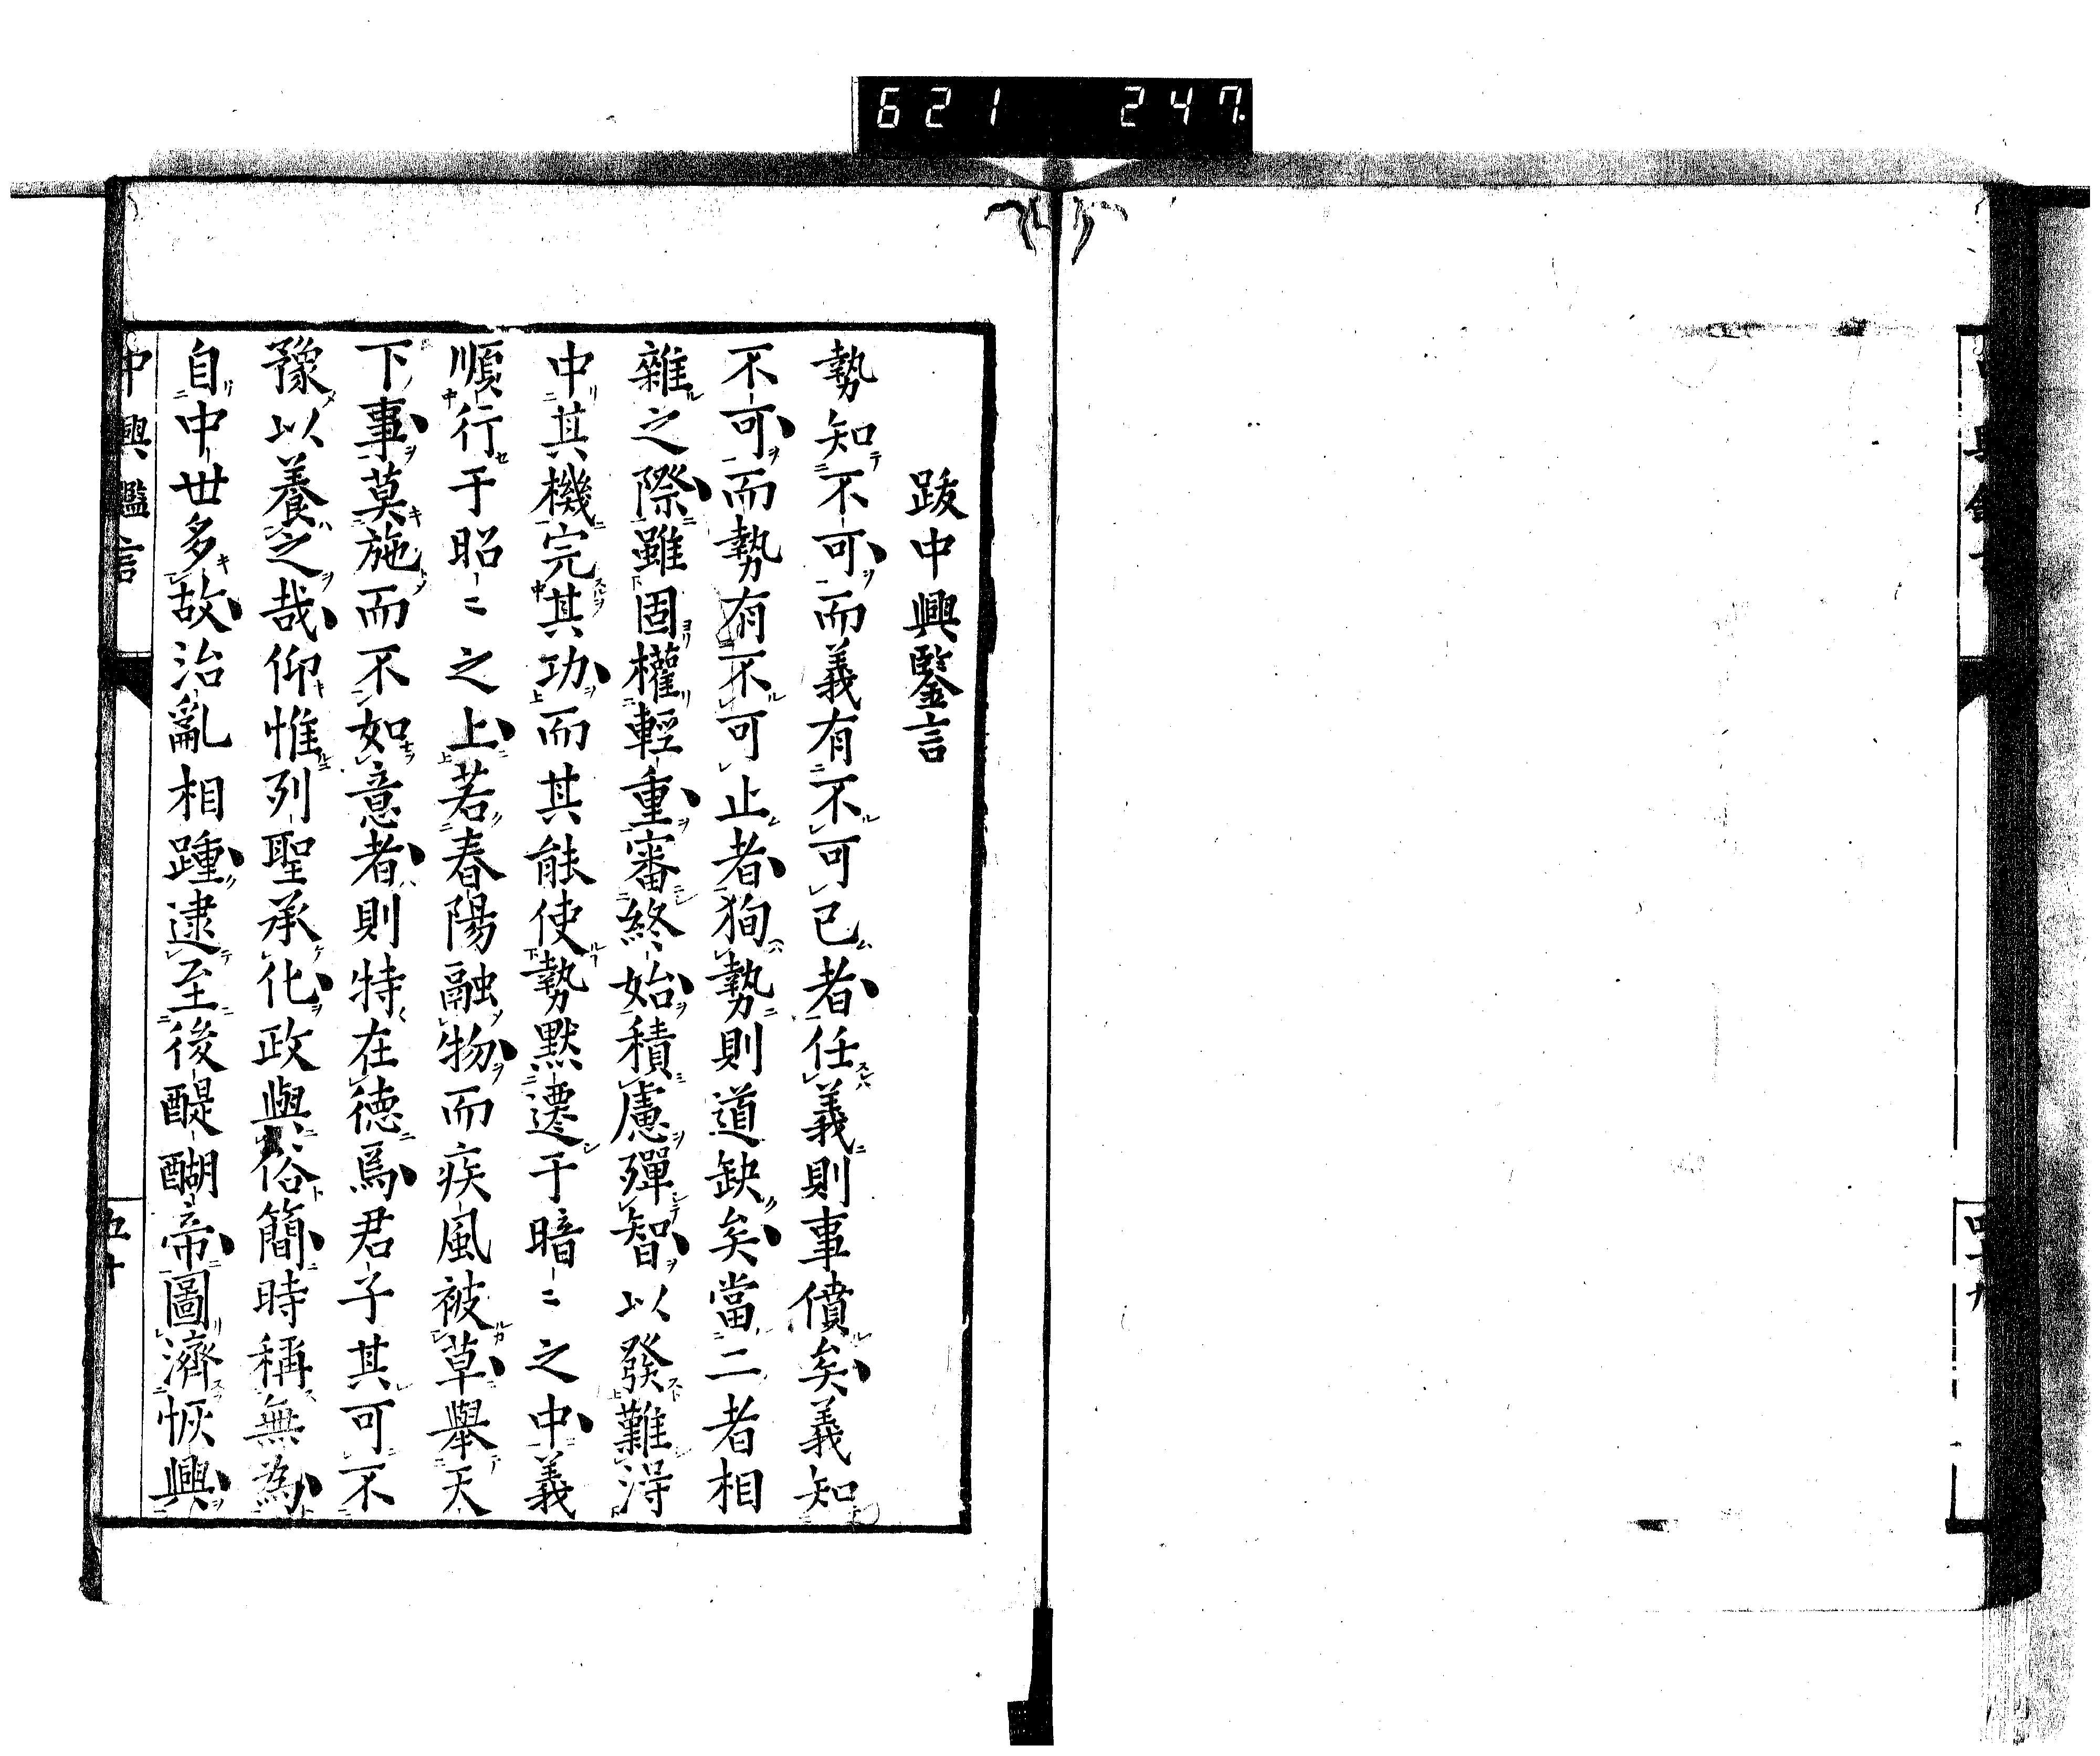 621 247
跋中興鑒言
勢知不可而義有不可已者任義則事僨矣義知
不可而勢有不可止者狥勢則道缺矣當二者相
雜之際雖固權輕重審終始積慮殫智以發難得
中其機完其功而其能使勢默遷于暗〻之中義
順行于昭〻之上若春陽融物而疾風被草舉天
下事莫施而不如意者則特在德焉君子其可不
豫以養之哉仰惟列聖承化政與俗簡時稱無為
自中世多故治亂相踵逮至後醍醐帝圖濟恢興
中興鑑言
五十